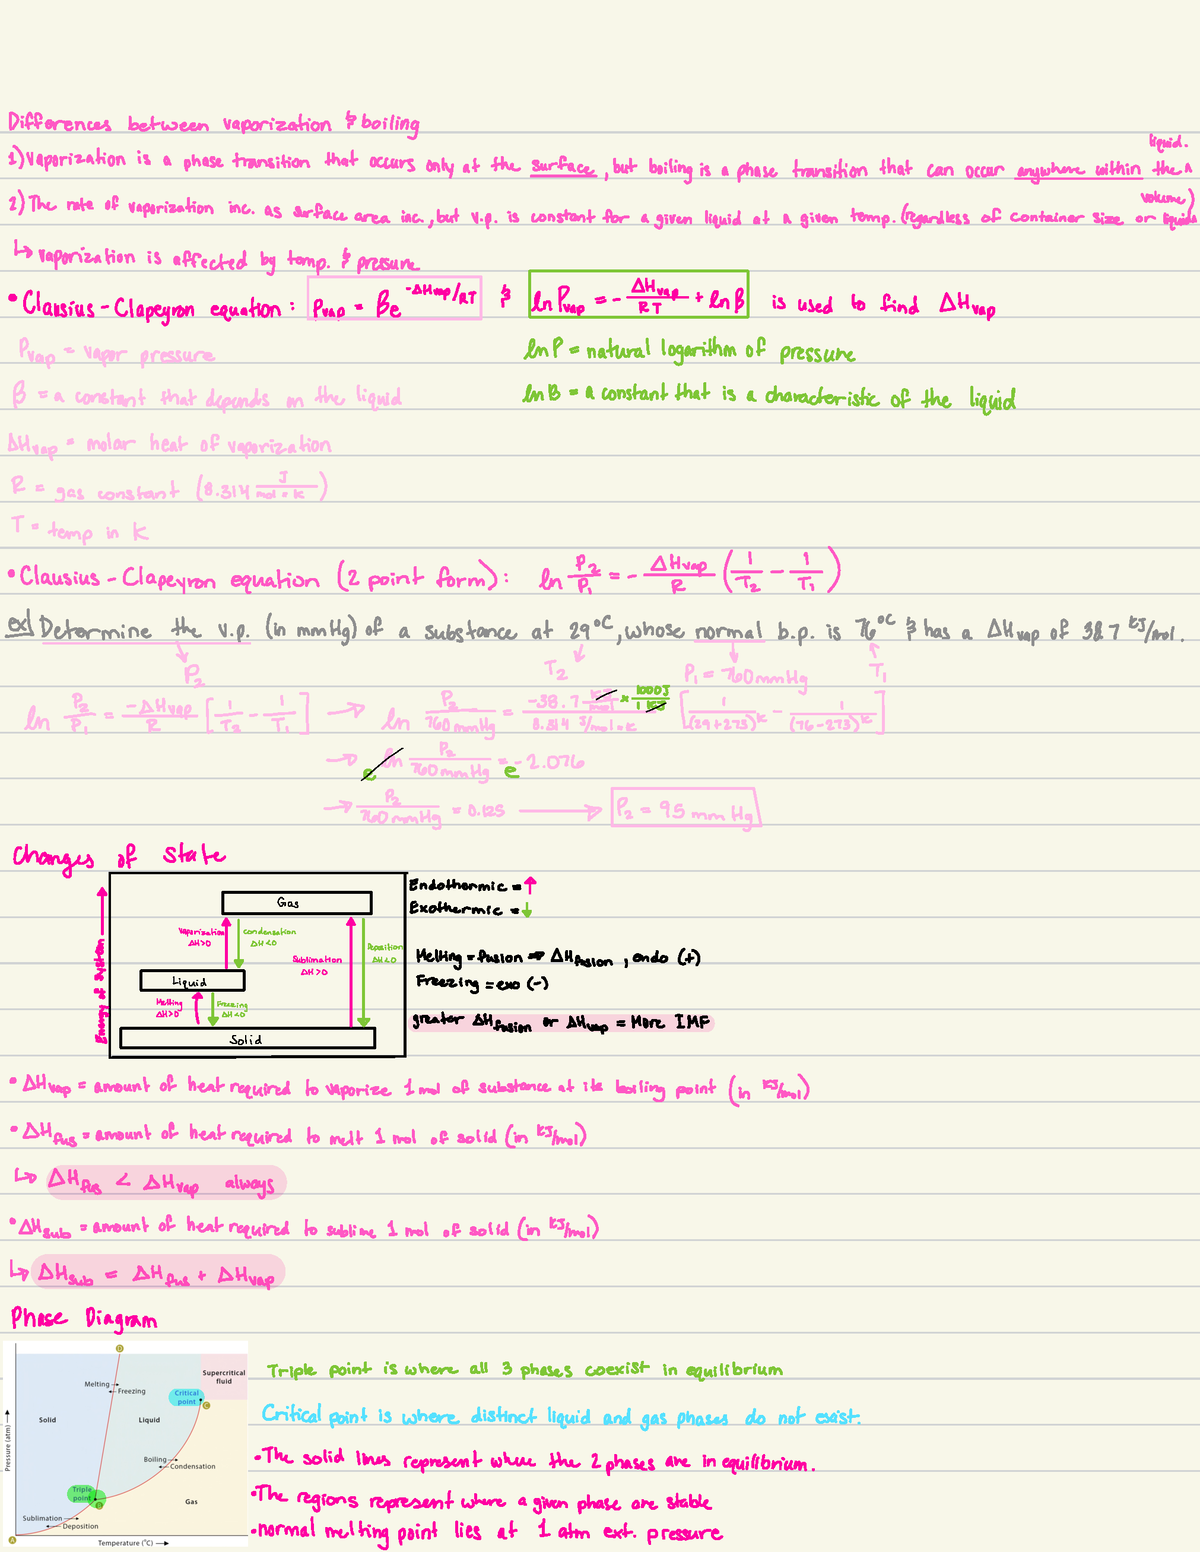 Differences between vaporization & boiling
1) Vaporization is a phase transition that occurs only at the surface, but boiling is a phase transition that can occur anywhere within the liquid.
2) The rate of vaporization inc. as surface area inc., but v.p. is constant for a given liquid at a given temp. (regardless of container size or liquid volume)
↳ vaporization is affected by temp. & pressure
• Clausius-Clapeyron equation: Pvap = βe^(-ΔHvap/RT) & ln Pvap = -ΔHvap/RT + ln β is used to find ΔHvap
Pvap = vapor pressure
ln P = natural logarithm of pressure
β = a constant that depends on the liquid
ln B = a constant that is a characteristic of the liquid
ΔHvap = molar heat of vaporization
R = gas constant (8.314 J/mol·K)
T = temp in K
• Clausius-Clapeyron equation (2 point form): ln P2/P1 = -ΔHvap/R (1/T2 - 1/T1)
ex) Determine the v.p. (in mmHg) of a substance at 29°C, whose normal b.p. is 76°C & has a ΔHvap of 38.7 kJ/mol.
P2 T2 P1 = 760 mmHg T1
ln P2/P1 = -ΔHvap/R [1/T2 - 1/T1] → ln P2/760 mmHg = -38.7 kJ/mol × 1000J/1 kJ / 8.314 J/mol·K [1/(29+273)K - 1/(76-273)K]
→ e ln P2/760 mmHg = e -2.076
→ P2/760 mmHg = 0.125 → P2 = 95 mm Hg
Changes of State
Energy of System →
Gas
Vaporization ΔH>0
Condensation ΔH<0
Sublimation ΔH>0
Deposition ΔH<0
Liquid
Melting ΔH>0
Freezing ΔH<0
Solid
Endothermic = ↑
Exothermic = ↓
Melting = fusion ⇒ ΔHfusion, endo (+)
Freezing = exo (-)
greater ΔHfusion or ΔHvap = More IMF
• ΔHvap = amount of heat required to vaporize 1 mol of substance at its boiling point (in kJ/mol)
• ΔHfus = amount of heat required to melt 1 mol of solid (in kJ/mol)
↳ ΔHfus < ΔHvap always
• ΔHsub = amount of heat required to sublime 1 mol of solid (in kJ/mol)
↳ ΔHsub = ΔHfus + ΔHvap
Phase Diagram
D
Supercritical fluid
Melting →
← Freezing
Critical point
C
Solid
Liquid
Boiling →
← Condensation
Triple point
B
Gas
Sublimation →
← Deposition
A
Pressure (atm) →
Temperature (°C) →
Triple point is where all 3 phases coexist in equilibrium
Critical point is where distinct liquid and gas phases do not exist.
• The solid lines represent where the 2 phases are in equilibrium.
• The regions represent where a given phase are stable
• normal melting point lies at 1 atm ext. pressure